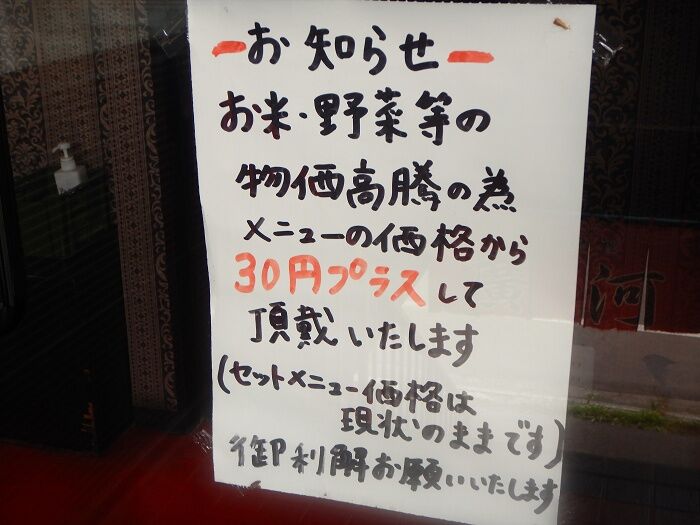 お知らせ
お米・野菜等の
物価高騰の為
メニューの価格から
30円プラスして
頂戴いたします
(セットメニュー価格は
現状のままです)
御利解お願いいたします
河